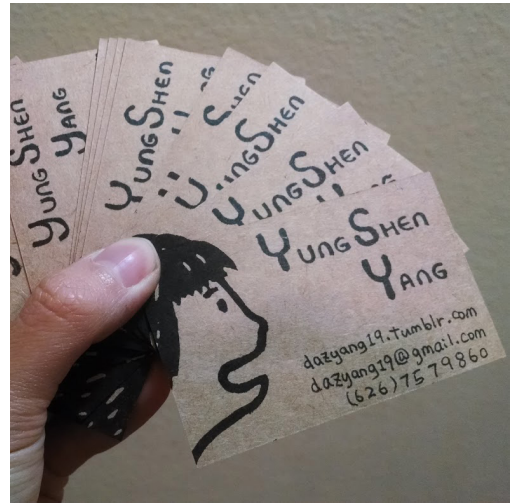 Yung Shen
Yang
Yung Shen
Yung Shen
Yung Shen
Yung Shen
Yang
dazyang19.tumblr.com
dazyang19@gmail.com
(626)7579860